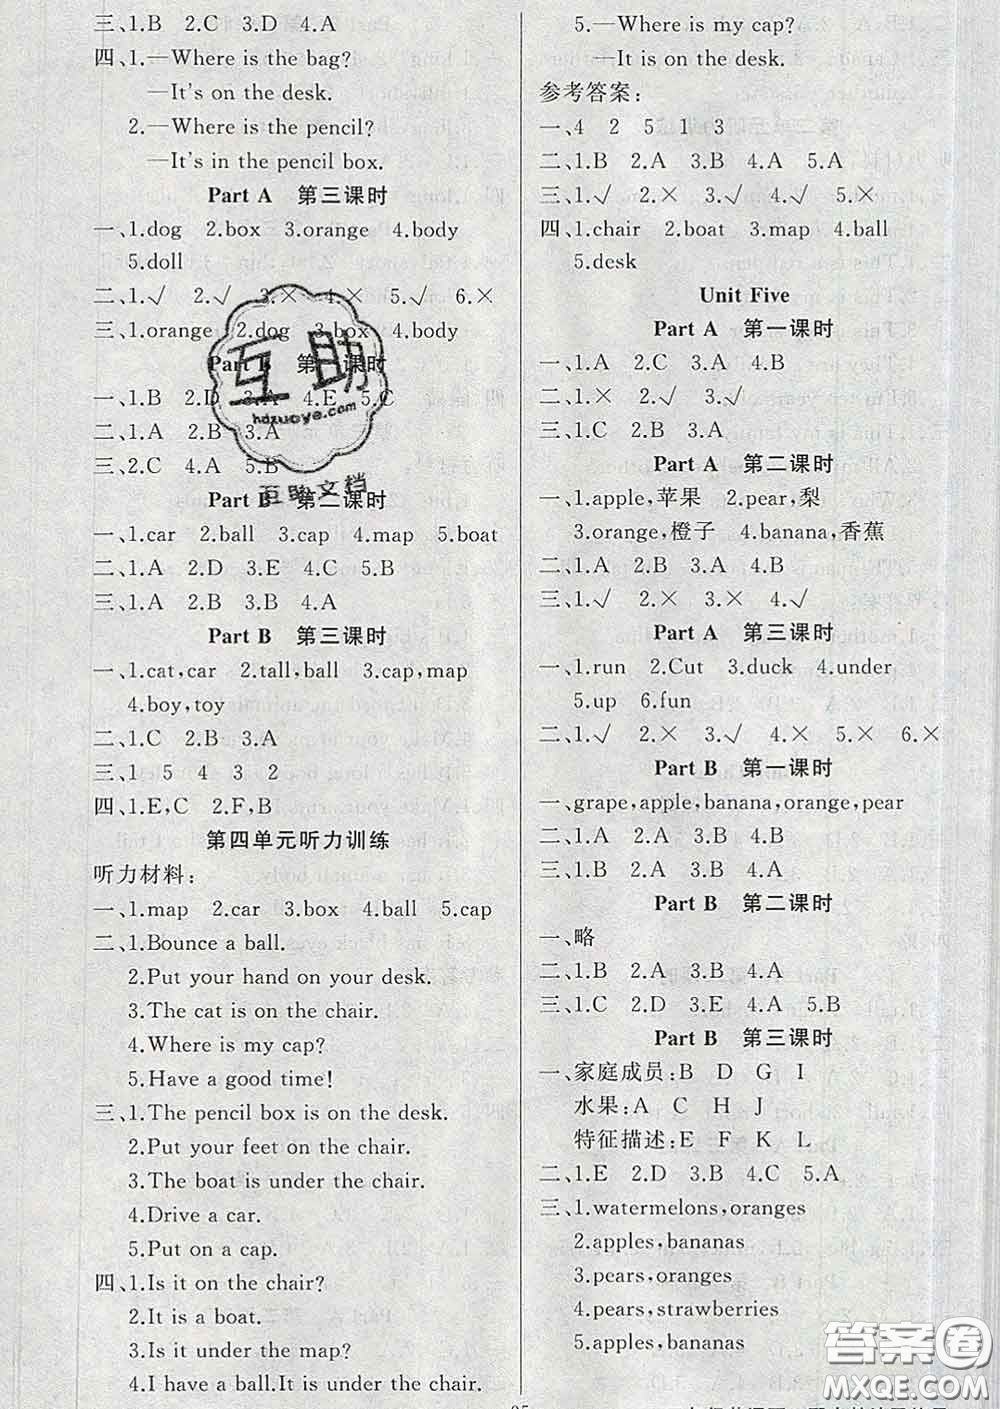 三、1.B 2.C 3.D 4.A
四、1.—Where is the bag?
—It's on the desk.
2.—Where is the pencil?
—It's in the pencil box.
Part A 第三课时
一、1.dog 2.box 3.orange 4.body
5.doll
二、1.√ 2.√ 3.× 4.× 5.√ 6.×
三、1.orange 2.dog 3.box 4.body
Part B 第一课时
一、1.B 2.D 3.A 4.E 5.C
二、1.A 2.B 3.A
三、2.C 4.A 5.B
Part B 第二课时
一、1.car 2.ball 3.cap 4.map 5.boat
二、1.A 2.D 3.E 4.C 5.B
三、1.A 2.B 3.B 4.A
Part B 第三课时
一、1.cat,car 2.tall,ball 3.cap,map
4.boy,toy
二、1.C 2.B 3.A
三、1 5 4 3 2
四、1.E,C 2.F,B
第四单元听力训练
听力材料:
一、1.map 2.car 3.box 4.ball 5.cap
二、1.Bounce a ball.
2.Put your hand on your desk.
3.The cat is on the chair.
4.Where is my cap?
5.Have a good time!
三、1.The pencil box is on the desk.
2.Put your feet on the chair.
3.The boat is under the chair.
4.Drive a car.
5.Put on a cap.
四、1.Is it on the chair?
2.It is a boat.
3.Is it under the map?
4.I have a ball.It is under the chair.
5.—Where is my cap?
—It is on the desk.
参考答案:
一、4 2 5 1 3
二、1.B 2.A 3.B 4.A 5.A
三、1.√ 2.× 3.√ 4.√ 5.×
四、1.chair 2.boat 3.map 4.ball
5.desk
Unit Five
Part A 第一课时
一、1.A 2.C 3.A 4.B
二、1.× 2.√ 3.√ 4.×
三、1.C 2.B 3.A
Part A 第二课时
一、1.apple,苹果 2.pear,梨
3.orange,橙子 4.banana,香蕉
二、1.A 2.B 3.A 4.B
三、1.√ 2.× 3.× 4.√
Part A 第三课时
一、1.run 2.Cut 3.duck 4.under
5.up 6.fun
二、1.√ 2.× 3.√ 4.× 5.× 6.×
Part B 第一课时
一、grape,apple,banana,orange,pear
二、1.A 2.A 3.B 4.B
三、1.B 2.B 3.A 4.A
Part B 第二课时
一、略
二、1.B 2.A 3.B 4.A
三、1.C 2.D 3.E 4.A 5.B
Part B 第三课时
一、家庭成员:B D G I
水果:A C H J
特征描述:E F K L
二、1.E 2.D 3.B 4.C 5.A
三、1.watermelons,oranges
2.apples,bananas
3.pears,oranges
4.pears,strawberries
5.apples,bananas
互助
hdzuoye.com
互助文档
答案圈
MXQE.COM